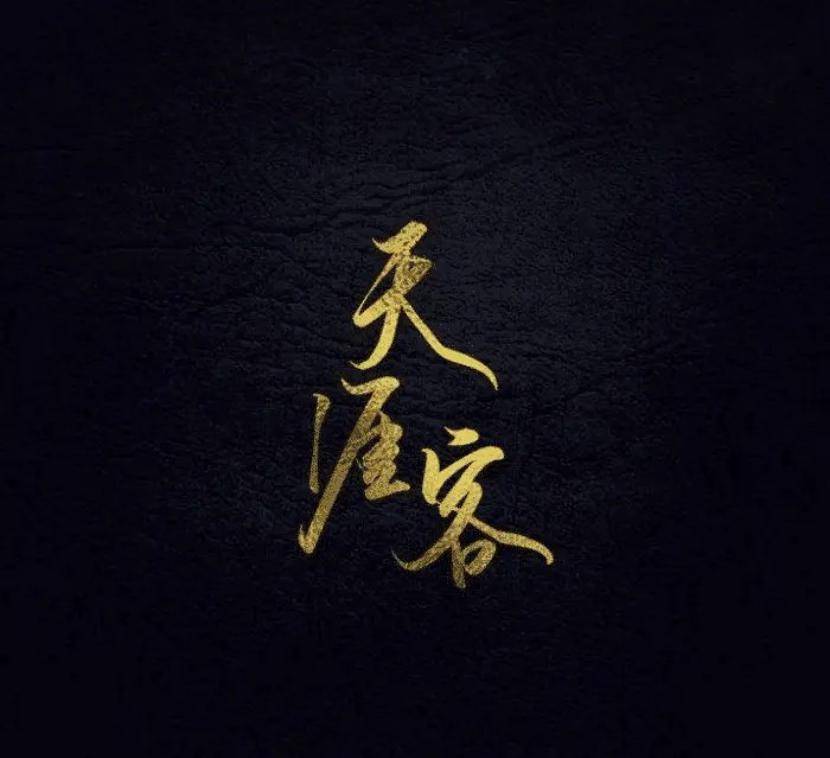 天涯客